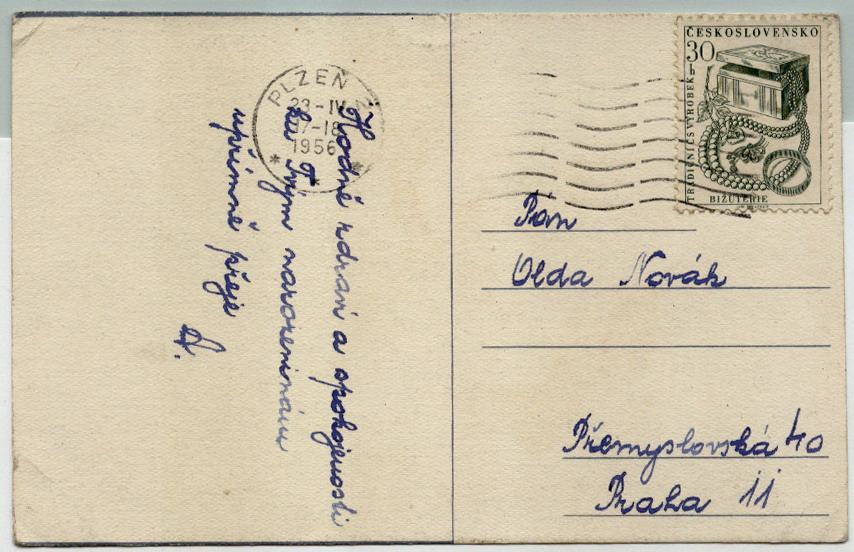 Hodně zdraví a spokojenosti
ku Tvým narozeninám
upřímně přeje
A.
PLZEŇ 2
23-IV
17-18
1956
ČESKOSLOVENSKO
30 h
TRADIČNÍ ČS VÝROBEK
BIŽUTERIE
Pán
Olda Novák
Přemyslovská 40
Praha 11